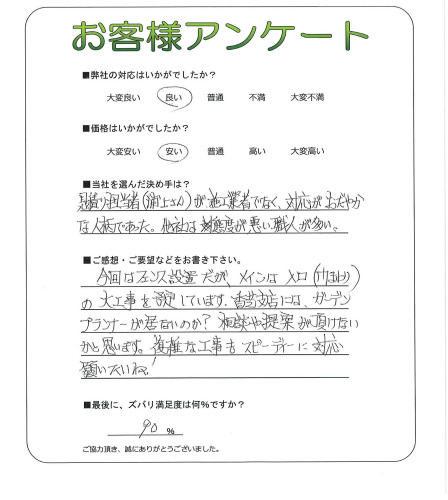 お客様アンケート
■弊社の対応はいかがでしたか?
大変良い 良い 普通 不満 大変不満
■価格はいかがでしたか?
大変安い 安い 普通 高い 大変高い
■当社を選んだ決め手は?
見積り担当者(浦上さん)が施工業者でなく、対応がおだやか
な人柄であった。他社は対応態度が悪い職人が多い。
■ご感想・ご要望などをお書き下さい。
今回はフェンス設置だが、メインは入口
の大工事を予定しています。 支店には、ガーデン
プランナーが居ないのか? 相談や提案が頂けない
かと思います。複雑な工事もスピーディーに対応
願いたいね!
■最後に、ズバリ満足度は何%ですか?
90 %
ご協力頂き、誠にありがとうございました。